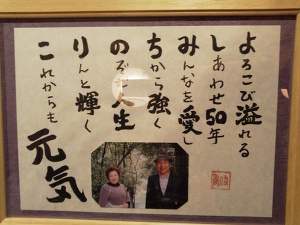 よろこび溢れる
しあわせ50年
みんなを愛し
ちから強く
のぞむ人生
りんと輝く
これからも
元気